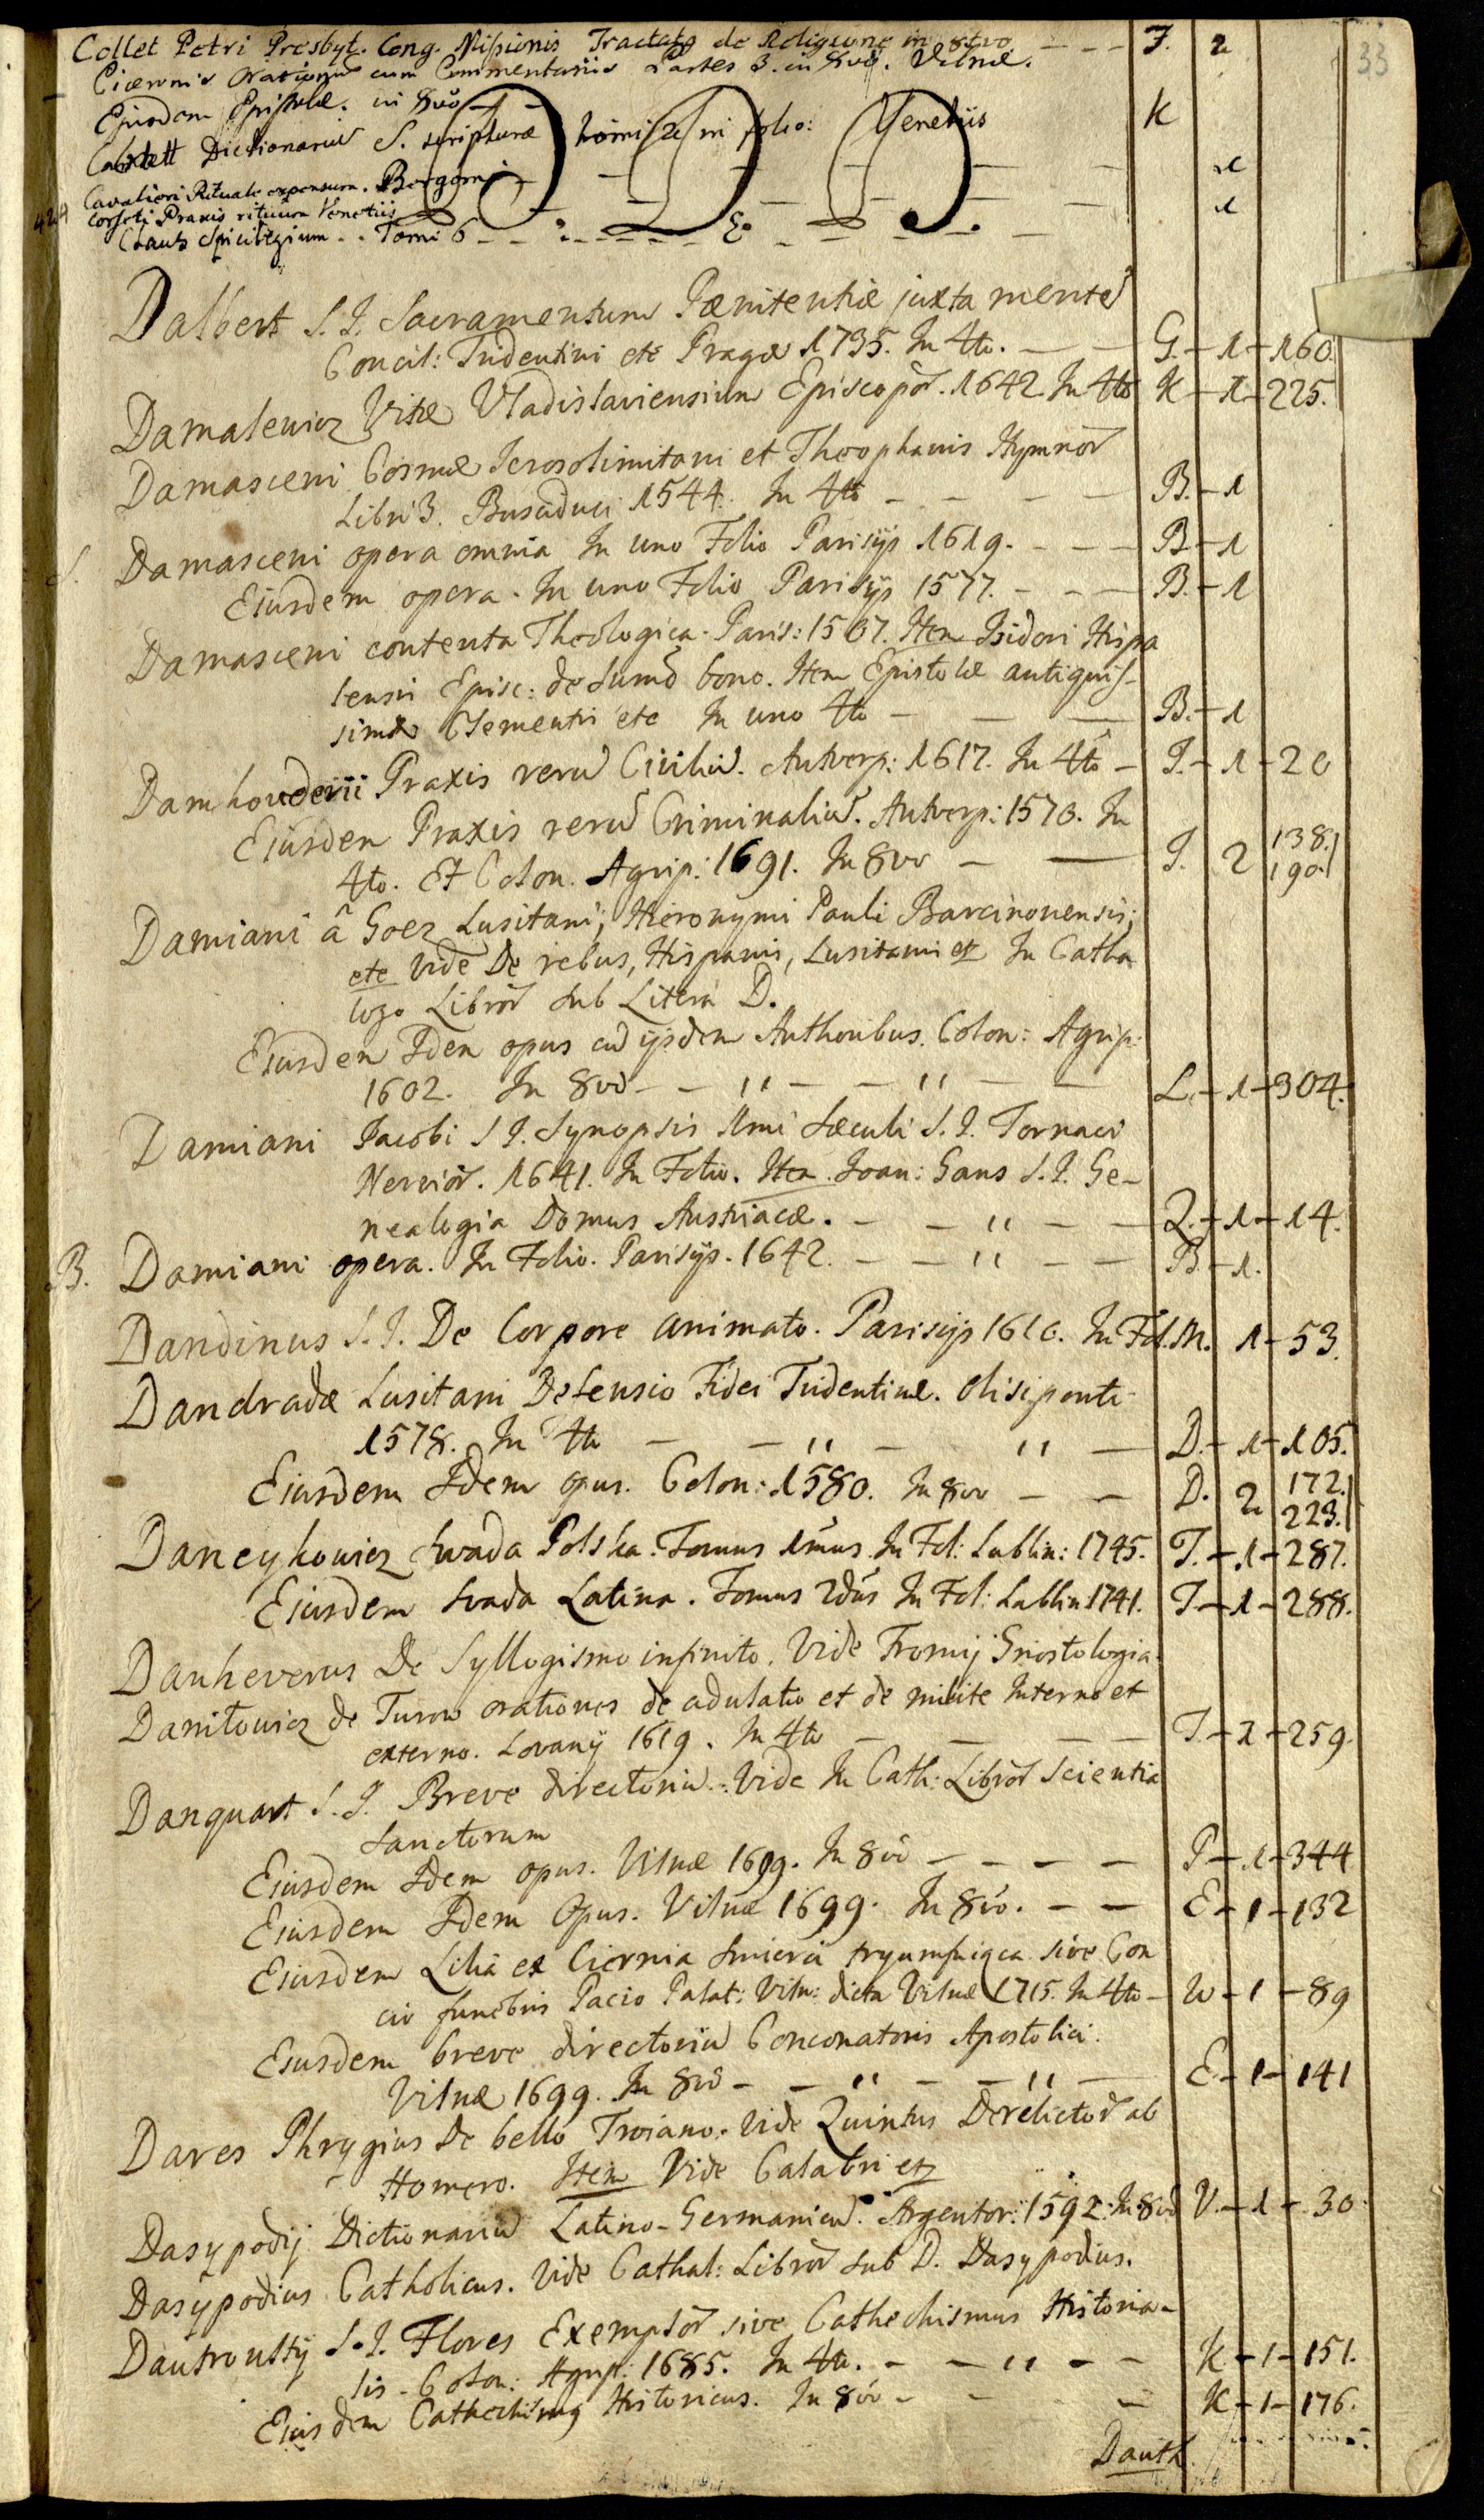 33
Collet Petri Presbyt. Cong. Missionis Tractatq de Religione in 8tvo. - - - J. 2
Ciceronis Orationū cum Commentariis Partes 3. in 8vo. Vilnæ.
Ejusdem Epistolæ. in 8vo
Dictionariū S. scripturæ tomi 2 in folio: Venetiis K
Cavalieri Rituale expensum. Bergomi - 1
Praxis rituum Venetiis - 1
Spicilegium - - Tomi 6
D D D.
Dalbert S. J. Sacramentum Pænitentiæ juxta mentē
Concil: Tridentini etc Pragæ 1735. In 4to. - - G. - 1 - 160.
Damalewicz Vitæ Vladislaviensium Episcopōr. 1642. In 4to K - 1 - 225.
Damasceni Cosmæ Ierosolimitani et Theophanis Hymnōr
Libri 3. Buscaduci 1544. In 4to - - - - B. - 1
Damasceni opera omnia In uno Folio Parisijs 1619. - - - B - 1
Eiusdem opera. In uno Folio Parisijs 1577. - - - B. - 1
Damasceni contenta Theologica. Paris: 1507. Item Isidori Hispa
lensis Episc: de Sumō bono. Item Epistolæ antiquis-
simæ Clementis etc In uno 4to - - - B. - 1
Damhouderii Praxis rerū Civiliū. Antverp: 1617. In 4to - J. - 1 - 20
Eiusdem Praxis rerū Criminaliū. Antverp: 1570. In
4to. Et Colon. Agrip: 1691. In 8vo - - J. 2 138. 190.
Damiani â Goez Lusitani; Hieronymi Pauli Barcinonensis;
etc Vide De rebus, Hispanis, Lusitanis etc In Catha
logo Librōr sub Litera D.
Eiusdem Idem opus cū ijsdem Authoribus. Colon: Agrip:
1602. In 8vo - - " - - " - - L. - 1 - 304.
Damiani Jacobi S J. Synopsis 1mi Sæculi S. J. Tornaci
Nerviōr. 1641. In Folio. Item. Joan: Gans S. J. Ge-
nealogia Domus Austriacæ. - - " - - Q. - 1 - 14.
B. Damiani opera. In Folio. Parisijs. 1642. - - " - - B - 1.
Dandinus S. J. De Corpore animato. Parisijs 1610. In Fol. M. 1 - 53.
Dandradæ Lusitani Defensio Fidei Tridentinæ. Olisiponte
1578. In 4to - - " - " - D. - 1 - 105.
Eiusdem Idem opus. Colon: 1580. In 8vo - - D. 2 172. 223.
Daneykowicz Swada Polska. Tomus 1mus. In Fol: Lublin: 1745. T. - 1 - 287.
Eiusdem Swada Latina. Tomus 2dus In Fol: Lublin 1741. T - 1 - 288.
Danheverus De Syllogismo infinito. Vide Fromij Gnostologia.
Daniłowicz de Turow orationes de adulatio et de milite Interno et
externo. Lovanij 1619. In 4to - - - - T - 1 - 259.
Danquart S. J. Breve directoriū. Vide In Cath: Librōr Scientia
Sanctorum
Eiusdem Idem opus. Vilnæ 1699. In 8vo - - - - P - 1 - 344
Eiusdem Idem Opus. Vilnæ 1699. In 8vo. - - E - 1 - 132
Eiusdem Lilia ex Ciernia Smierci tryumfuiąca sive Con
cio funebris Pacio Palat: Viln: dicta Vilnæ 1715. In 4to - W - 1 - 89
Eiusdem breve directoriū Concionatoris Apostolici.
Vilnæ 1699. In 8vo - - " - - " - E - 1 - 141
Dares Phrygius De bello Troiano. Vide Quintus Derelictōr ab
Homero. Item Vide Calabri etc
Dasypodij Dictionariū Latino-Germanicū. Argentor: 1592. In 8vo V. - 1 - 30.
Dasypodius Catholicus. Vide Cathal: Librōr sub D. Dasypodius.
Dautroultij S. J. Flores Exemplōr sive Cathechismus Historia-
lis. Colon: Agrip: 1685. In 4to. - - " - - K - 1 - 151.
Eiusdem Cathechismq Historicus. In 8vo - - - - K - 1 - 176.
Dauth